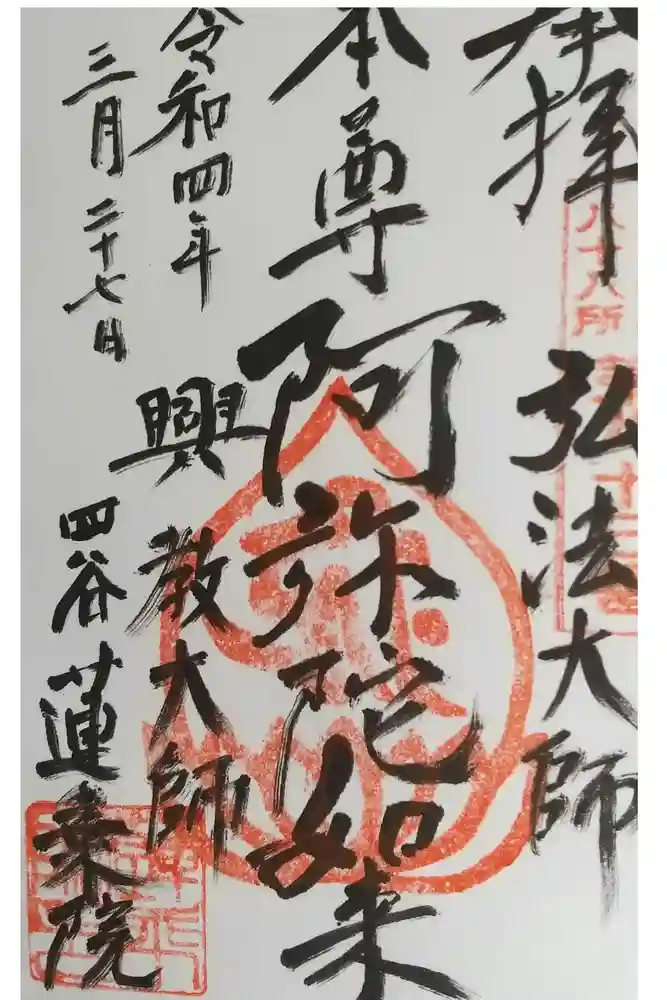 奉拝
八十八所
弘法大師
本尊
阿弥陀如来
興教大師
令和四年
三月二十七日
四谷
蓮乗院